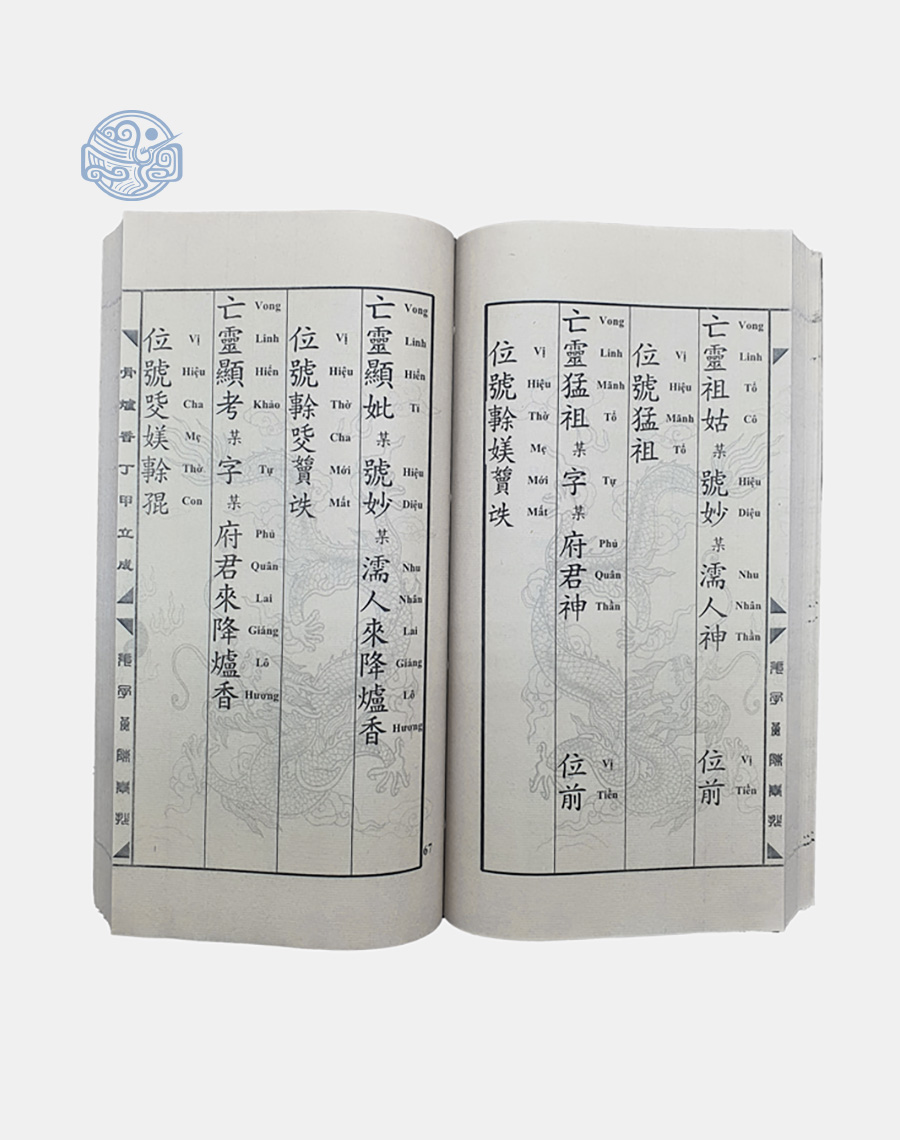 亡靈祖姑某號妙某濡人神位前
Vong Linh Tổ Cô Hiệu Diệu Nhu Nhân Thần Vị Tiền
位號猛祖
Vị Hiệu Mãnh Tổ
亡靈猛祖某字某府君神位前
Vong Linh Mãnh Tổ Tự Phủ Quân Thần Vị Tiền
位號媄
Vị Hiệu Thờ Mẹ Mới Mất
亡靈顯妣某號妙某濡人來降爐香
Vong Linh Hiển Tỉ Hiệu Diệu Nhu Nhân Lai Giáng Lô Hương
位號
Vị Hiệu Thờ Cha Mới Mất
亡靈顯考某字某府君來降爐香
Vong Linh Hiển Khảo Tự Phủ Quân Lai Giáng Lô Hương
位號媄
Vị Hiệu Cha Mẹ Thờ Con
67